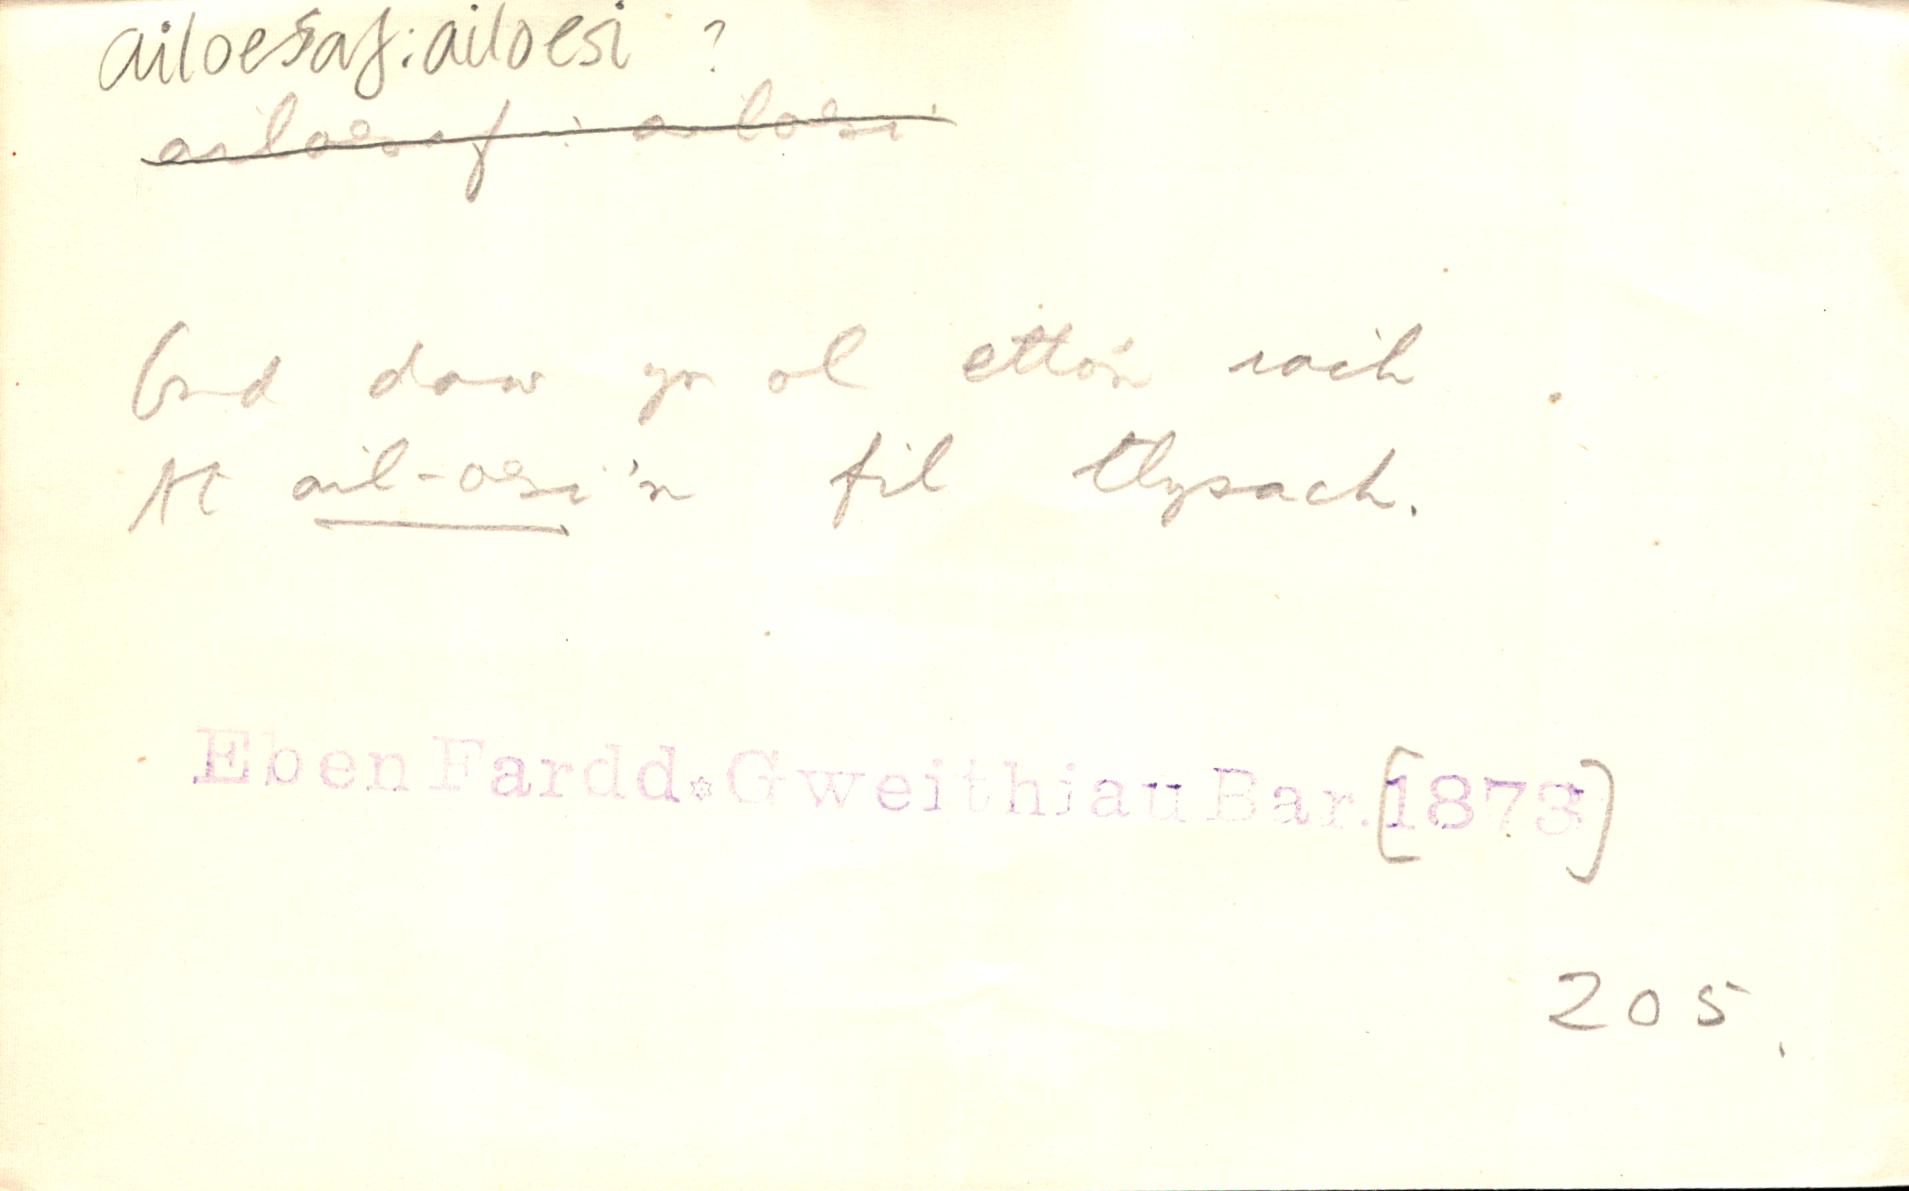 ailoesaf: ailoesi ?
ailoesaf : ailoesi
Ond daw yn ol etto'n iach
At ail-oesi'n fil tlysach.
Eben Fardd*Gweithiau Bar.[1873]
205.